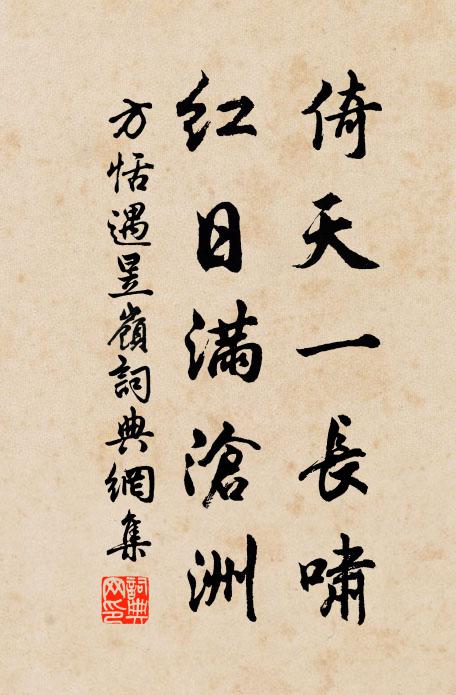 倚天一長嘯
紅日滿滄洲
方恬遇昱嶺詞典網集
詞典網印